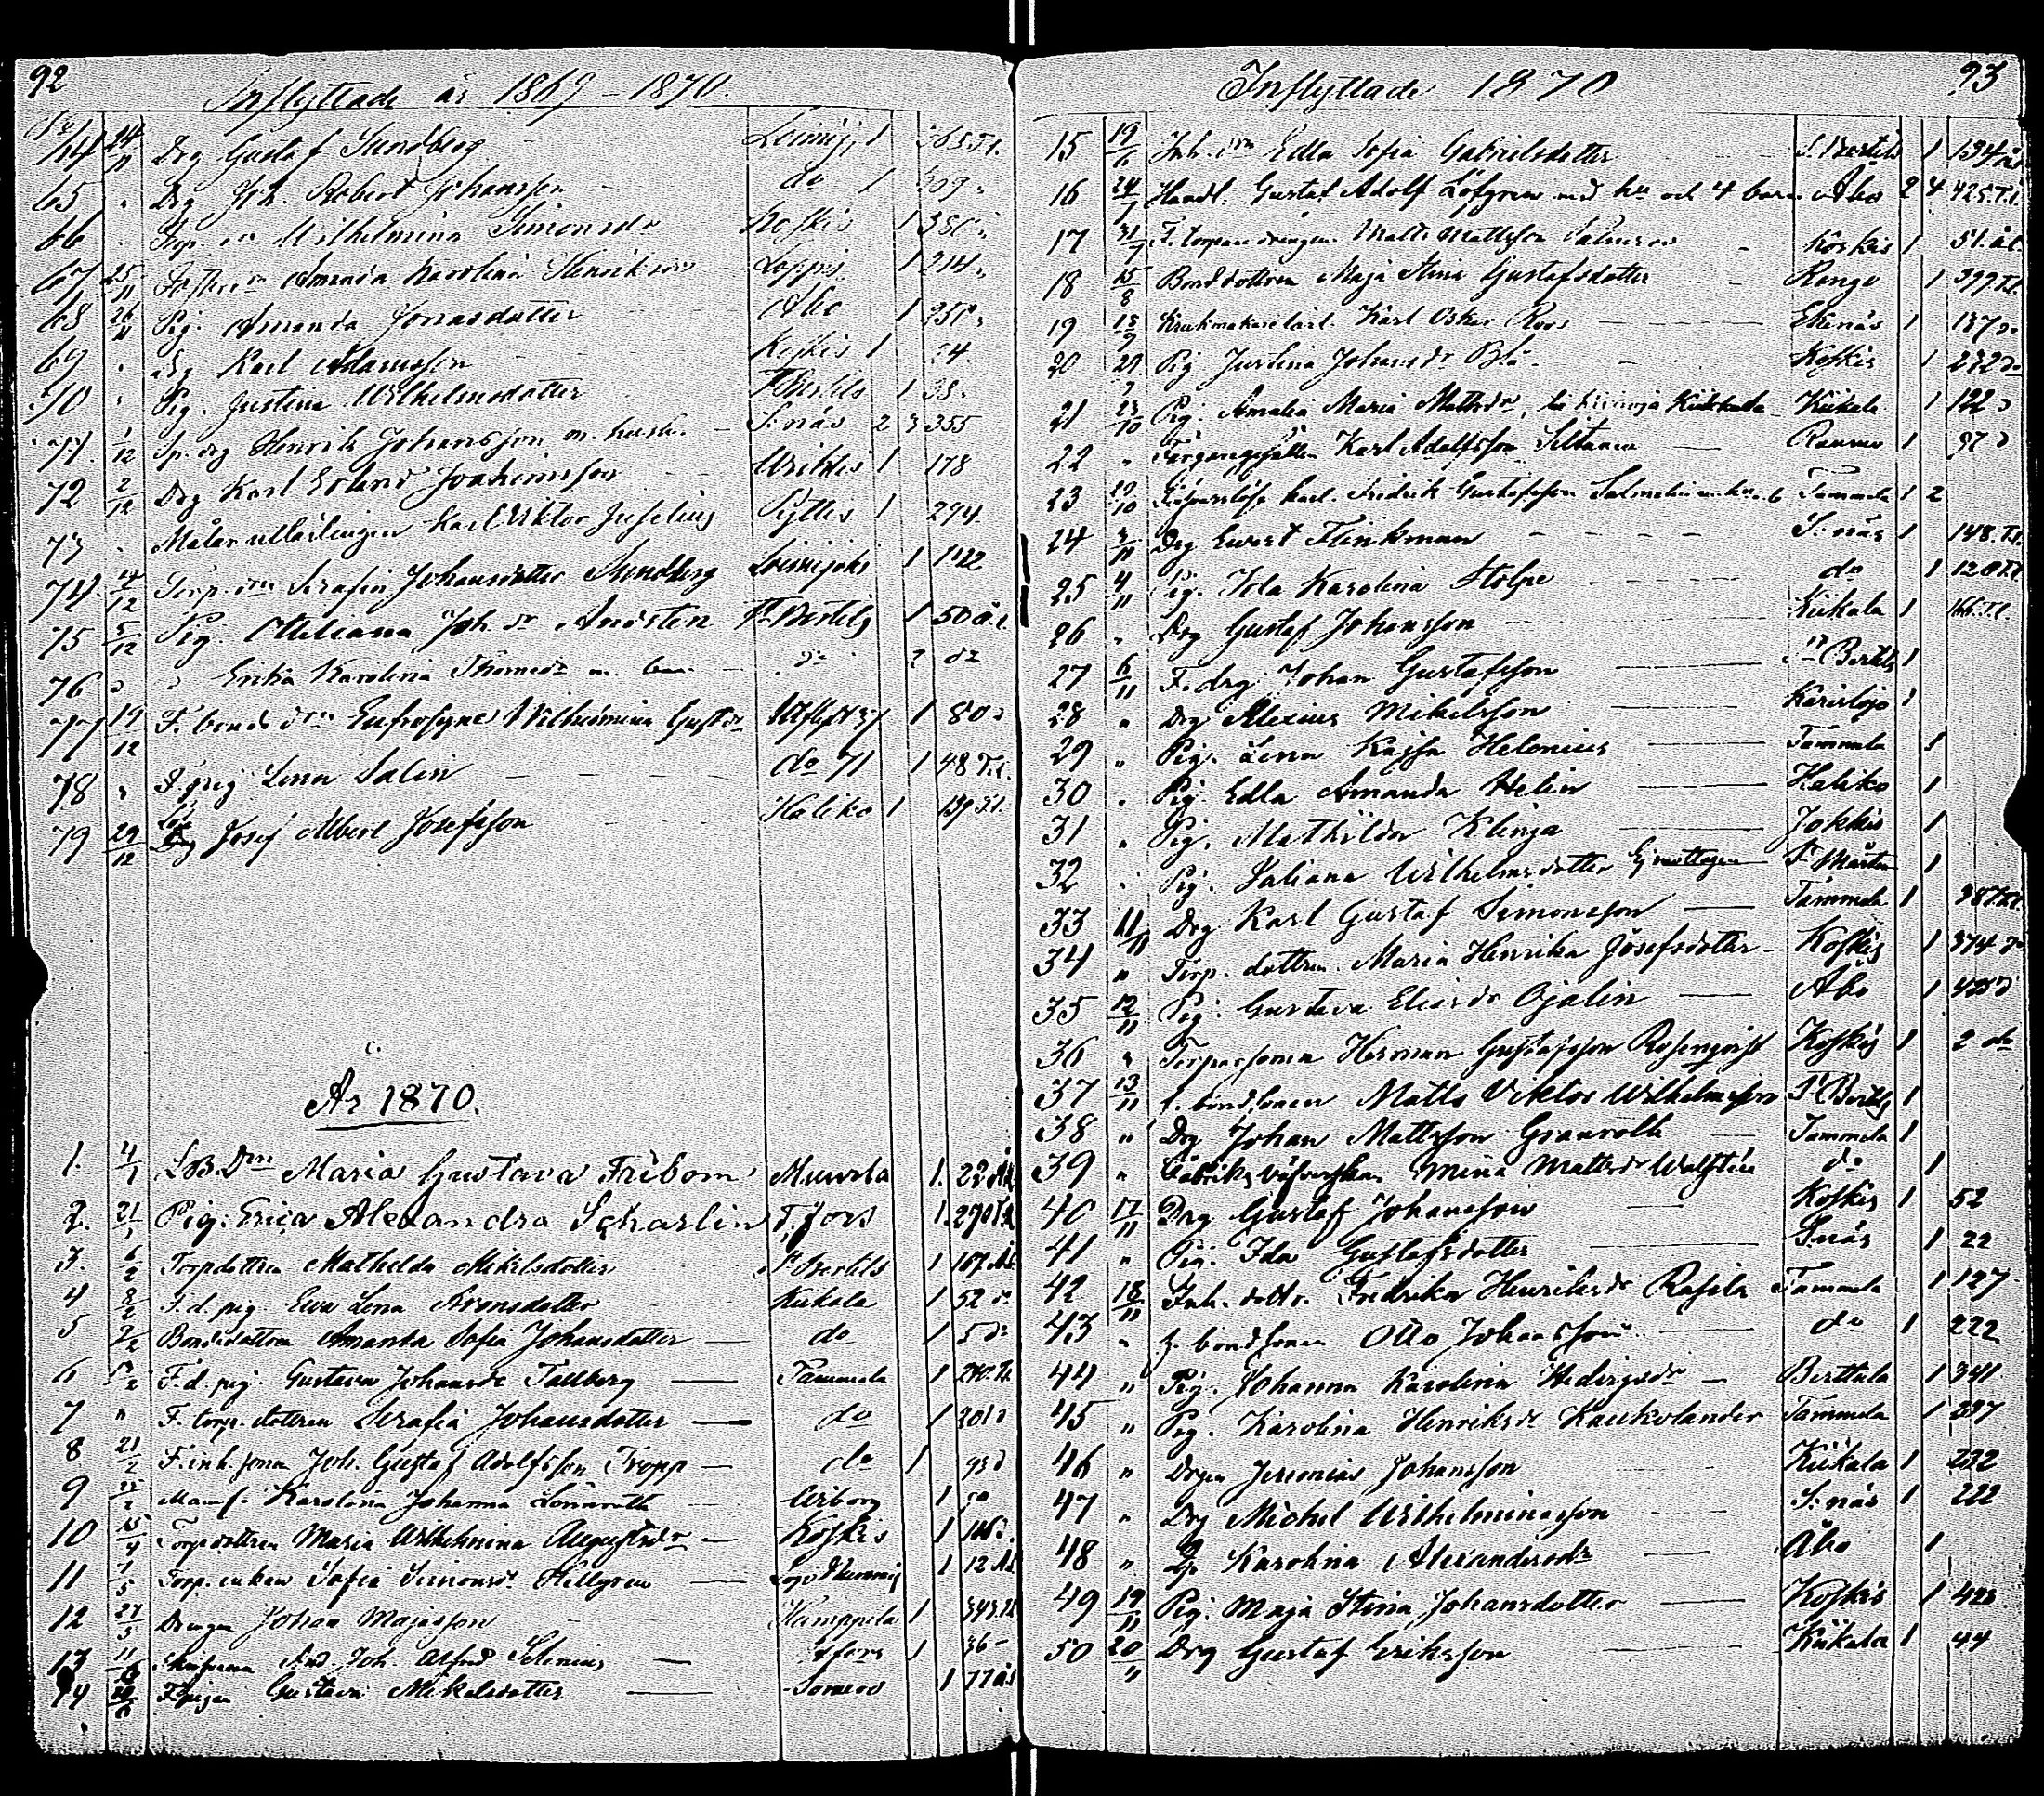 92
Inflyttade år 1869-1870.
64 24/11 Drg Gustaf Sundberg Loimij. 1 365 T.l.
65 " Drg Joh. Robert Johansson do 1 309 "
66 " Torp. dn Wilhelmina Simonsdr Koskis 1 380 "
67 25/11 Amanda Karolina Henriksdr Loppis 1 214 "
68 26/11 Pig. Amanda Jonasdotter Åbo 1 250 "
69 " Drg Karl Adamsson Koskis 1 24.
70 " Pig. Justina Wilhelmsdotter St Bertils 1 38 "
71. 1/12 Sp. drg Henrik Johansson m. hustr. S:näs 2 3 355
72 2/12 Drg Karl Erland Joakimsson Wiktis 1 178
73 " Målarelärlingen Karl Viktor Juselius Pyttis 1 294.
74 4/12 Torp. drn Serafia Johansdotter Sundberg Loimijoki 1 142
75 5/12 Pig. Ottiliana Joh. dr Andsten St Bertils 1 50 å.l.
76 " " Erika Karolina Thomasdr m. barn do 2 do
77 19/12 F. bonde drn Eufrosyne Wilhelmina Gustdr Utflytt 37 1 80 "
78 " F. pig Lena Salin do 71 1 48 T.l.
79 29/12 Josef Albert Josefsson Haliko 1 139 T.l.
År 1870.
1. 4/1 Maria Gustava Fribom Muurla 1. 22 Ål.
2. 21/1 Pig. Erica Alexandra Scharlin T. fors 1. 270 T.l.
3. 6/2 Torpdottren Mathilda Mikelsdotter St Bertils 1 107 Ål.
4 8/2 F. d. pig. Eva Lena Aronsdotter Kiikala 1 52 do
5 Bondedottren Amanda Sofia Johansdotter — do 1 5 do
6 F. d. pig. Gustava Johansdr Tallberg — Tammela 1 240 Tl.
7 " F. torp. dottren Serafia Johansdotter — do 1 201 d
8 21/2 F. inh. sonen Joh. Gustaf Adolfsson Tropp — do 1 93 d
9 Mams. Karolina Johanna Lönnroth Wiborg 1
10 15/4 Torpdottren Maria Wilhelmina Augustsdr — Koskis 1
11 1/5 Torp. enkan Sofia Simonsdr Hellgren — 1 12 Ål.
12 27/5 Drengen Johan Majasson Humppila 1 343 Tl.
13 11/6 And. Joh. Alfred Selenius — 1 36 —
14 F. pigan Gustava Mikelsdotter — Somero 1 77 ål
Inflyttade 1870 93
15 19/6 Inh. drn Edla Sofia Gabrielsdotter St Bertils 1 134 ål
16 24/7 Handl. Gustaf Adolf Löfgren med hu och 4 barn Åbo 2 4 425 T.l.
17 31/7 F. torpare drengen Matts Mattsson Salmeros Koskis 1 51 ål.
18 15/8 Bonddottren Maja Stina Gustafsdotter Rengo 1 399 T.l.
19 13/9 Krukmakarelärl. Karl Oskar Roos Ekenäs 1 137 do
20 29/9 Pig Justina Johansdr Blå Koskis 1 272 do
21 23/10 Pig. Amalia Maria Mattsdr, Kiikala 1 122 d
22 " Färgaregesällen Karl Adolfsson Siltanen Raumo 1 97 d
23 29/10 karl. Fredrik Gustafsson Salmelin Tammela 1 2
24 3/11 Drg Evert Flinkman S:näs 1 148. T.l.
25 4/11 Pig. Ida Karolina Stolpe do 1 120 Tl
26 " Drg Gustaf Johansson Kiikala 1 166. T.l.
27 6/11 F. drg Johan Gustafsson St Bertils 1
28 " Drg Alexius Mikelsson Karislojo 1
29 " Pig. Lena Kajsa Helenius Tammela 1
30 " Pig. Edla Amanda Helin Haliko 1
31 " Pig. Mathilda Klinga Jokkis 1
32 " Pig. Juliana Wilhelmsdotter Ej mottagen St Mårtens 1
33 11/11 Drg Karl Gustaf Simonsson — Tammela 1 387 Tl.
34 " Torp. dottren Maria Henrika Josefsdotter — Koskis 1 374 do
35 12/11 Pig. Gustava Eliasdr Ojalin — Åbo 1 425 d
36 " Torparsonen Herman Gustafsson Rosenqvist Koskis 1 2 do
37 13/11 f. bondsonen Matts Viktor Wilhelmsson St Bertils 1
38 " Drg Johan Mattsson Granroth Tammela 1
39 " Fabriks väfverskan Mina Mattsdr Walstén do 1
40 17/11 Drg Gustaf Johansson Koskis 1 52
41 " Pig. Ida Gustafsdotter S:näs 1 22
42 18/11 Inh. dottr. Fredrika Henriksdr Rasila Tammela 1 127
43 " f. bondsonen Otto Johansson do 1 222
44 " Pig. Johanna Karolina Hedvigsdr — Berttula 1 341
45 " Pig. Karolina Henriksdr Kaukolander Tammela 1 237
46 " Drgen Jeremias Johansson Kiikala 1 232
47 " Drg Michel Wilhelminasson S:näs 1 222
48 " Pig. Karolina Alexandersdr — Åbo 1
49 19/11 Pig. Maja Stina Johansdotter — Koskis 1 423
50 20/11 Drg Gustaf Eriksson Kiikala 1 44